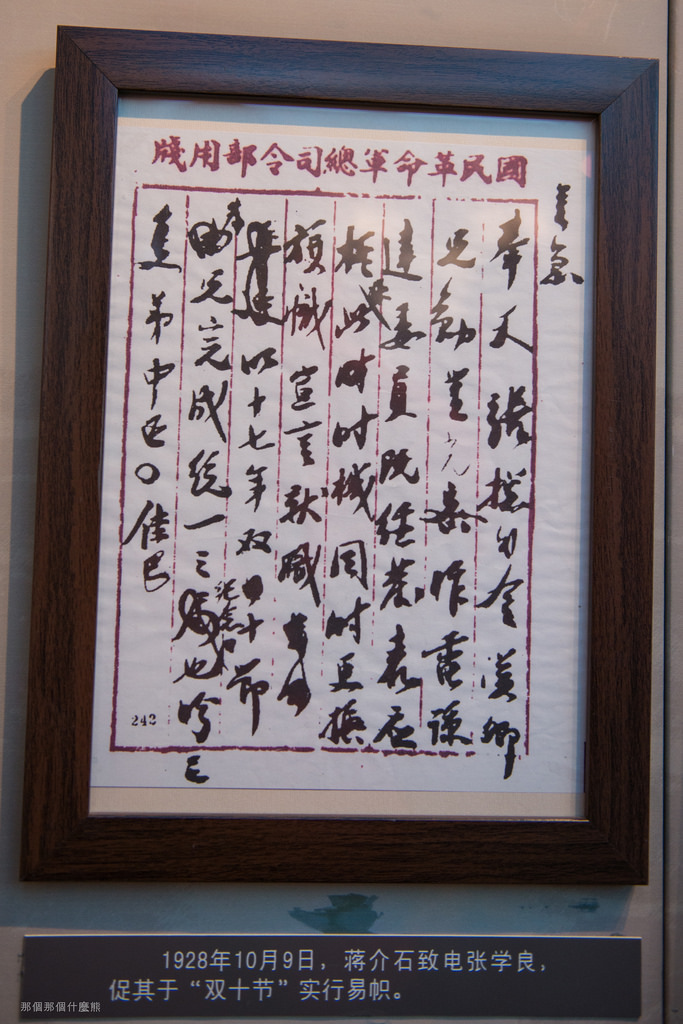 國民革命軍總司令部用牋
急
奉天張總司令漢卿
兄勛鑒 昨電諒
達委員既經發表應
此时时機同时更換
旗幟宣言就職
以十七年双十節
紀念
兄完成統一之也盼
弟中正○佳巳
242
1928年10月9日，蒋介石致电张学良，
促其于“双十节”实行易帜。
那個那個什麼熊